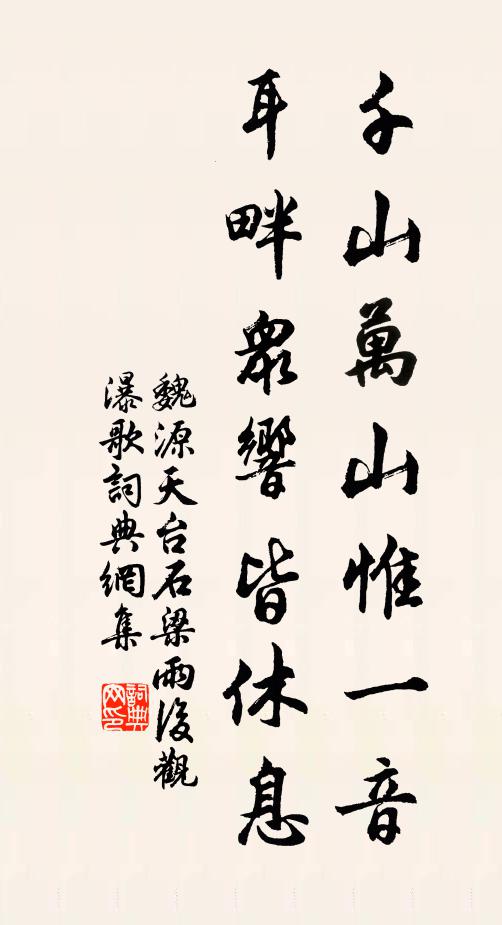 千山萬山惟一音
耳畔眾響皆休息
魏源天台石梁雨後觀
瀑歌詞典網集
詞典
网印